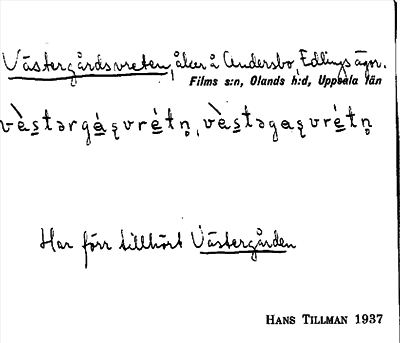 Västergårdsvreten, åker å Andersbo, Edlings ägor.
Films s:n, Olands h:d, Uppsala län
Har förr tillhört Västergården
HANS TILLMAN 1937